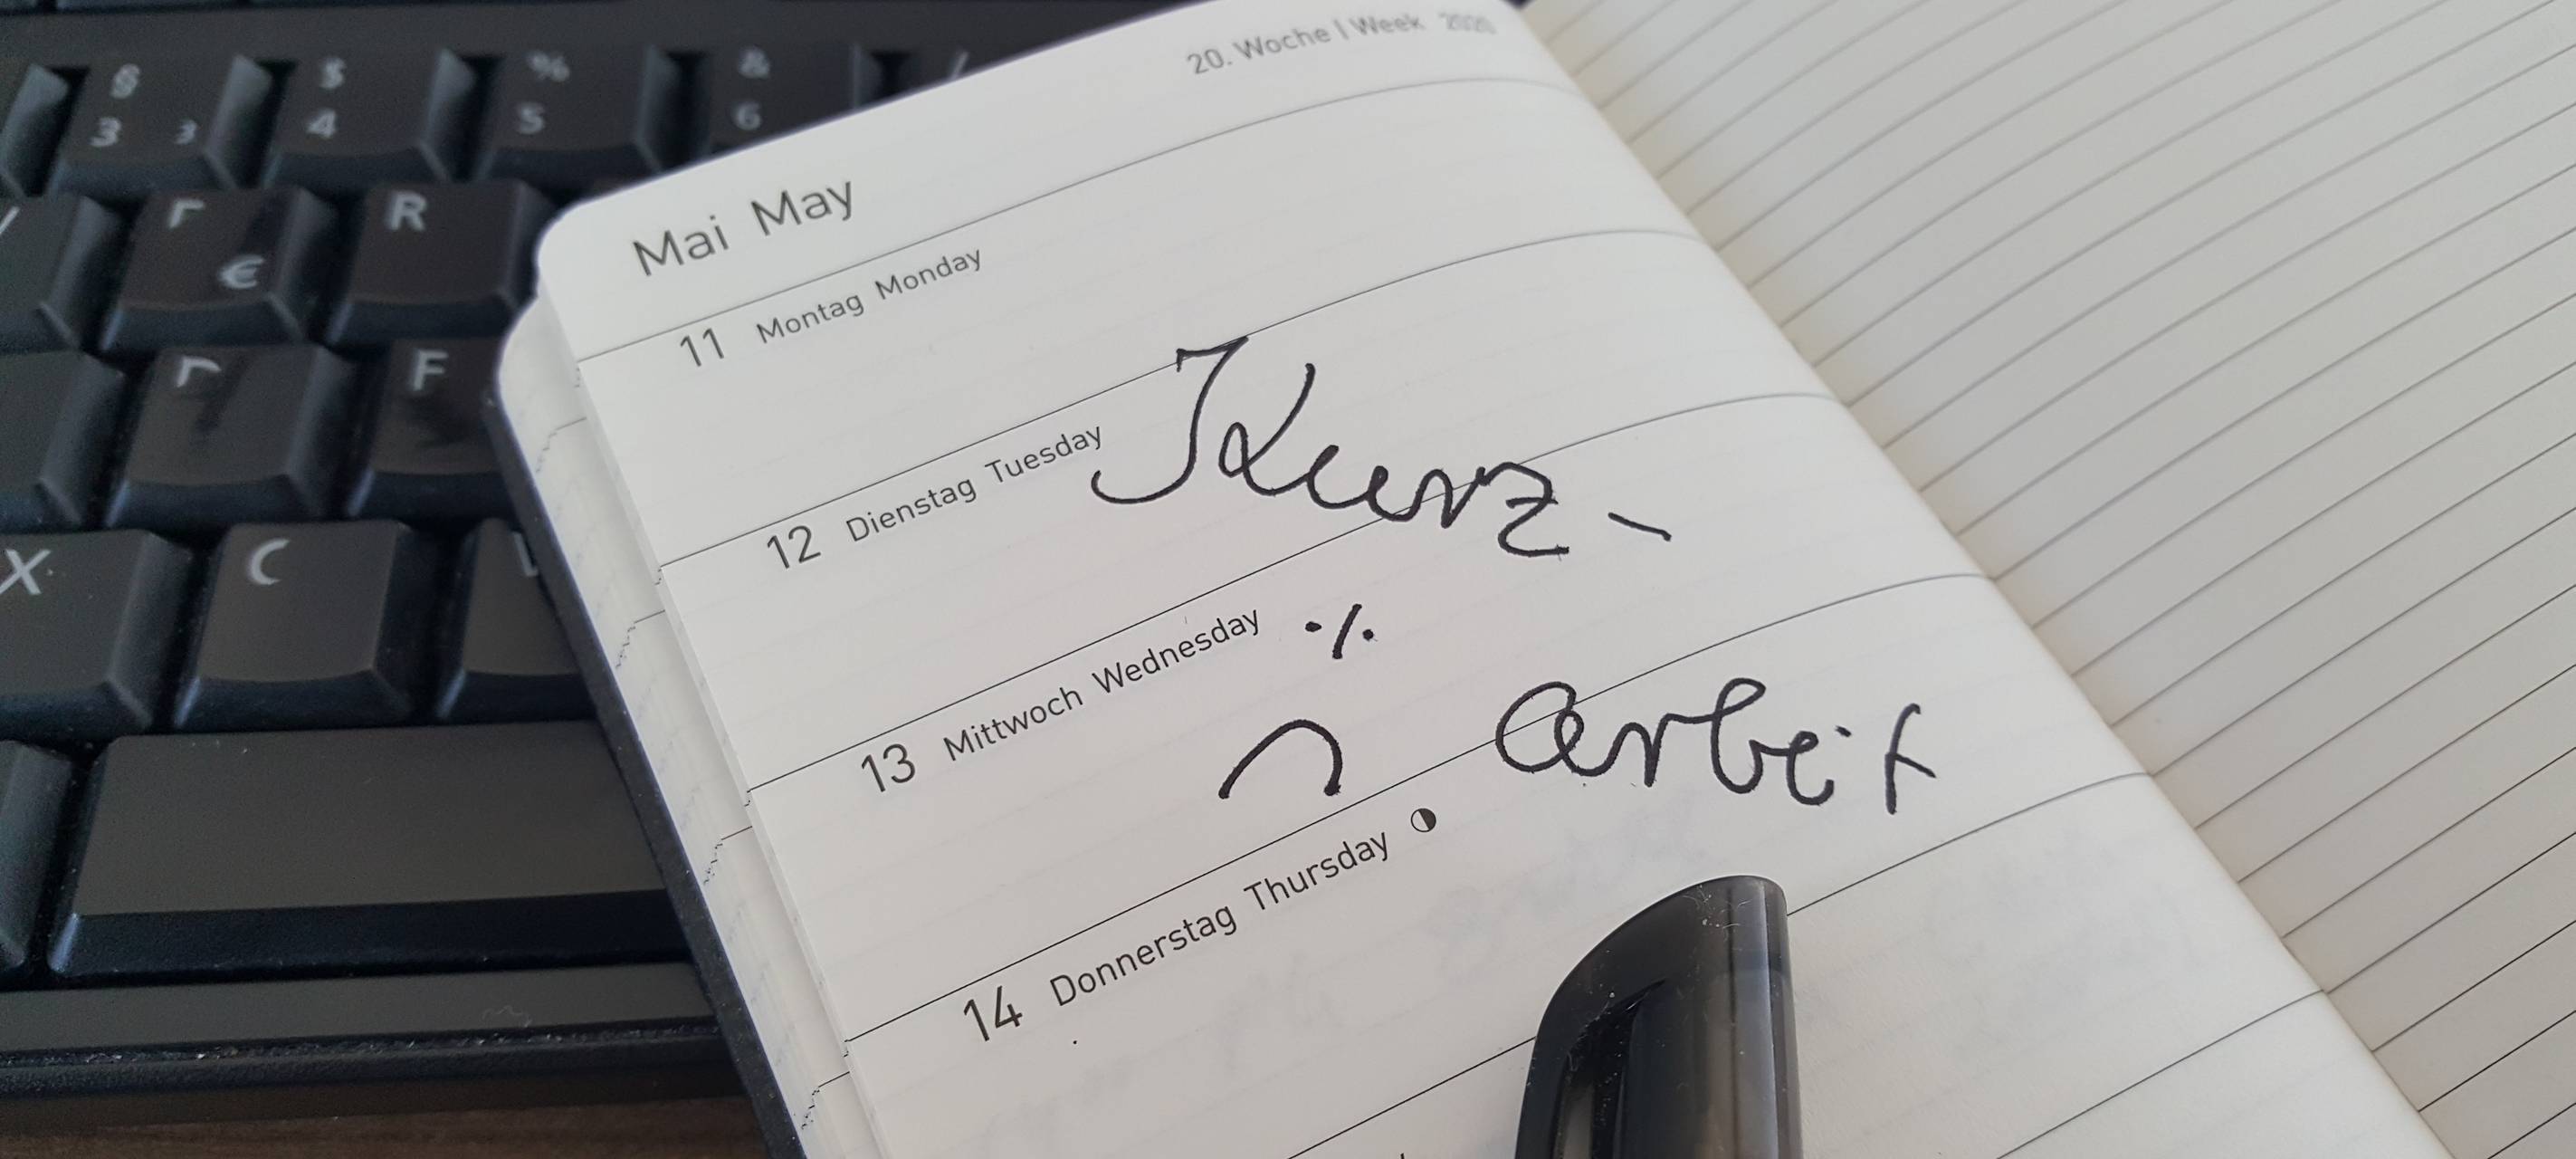 20. Woche | Week 2020
Mai May
11 Montag Monday
12 Dienstag Tuesday
Kurz-
13 Mittwoch Wednesday ·/.
arbeit
14 Donnerstag Thursday
§ $ % & /
3 3 4 5 6
€ R
F
X C